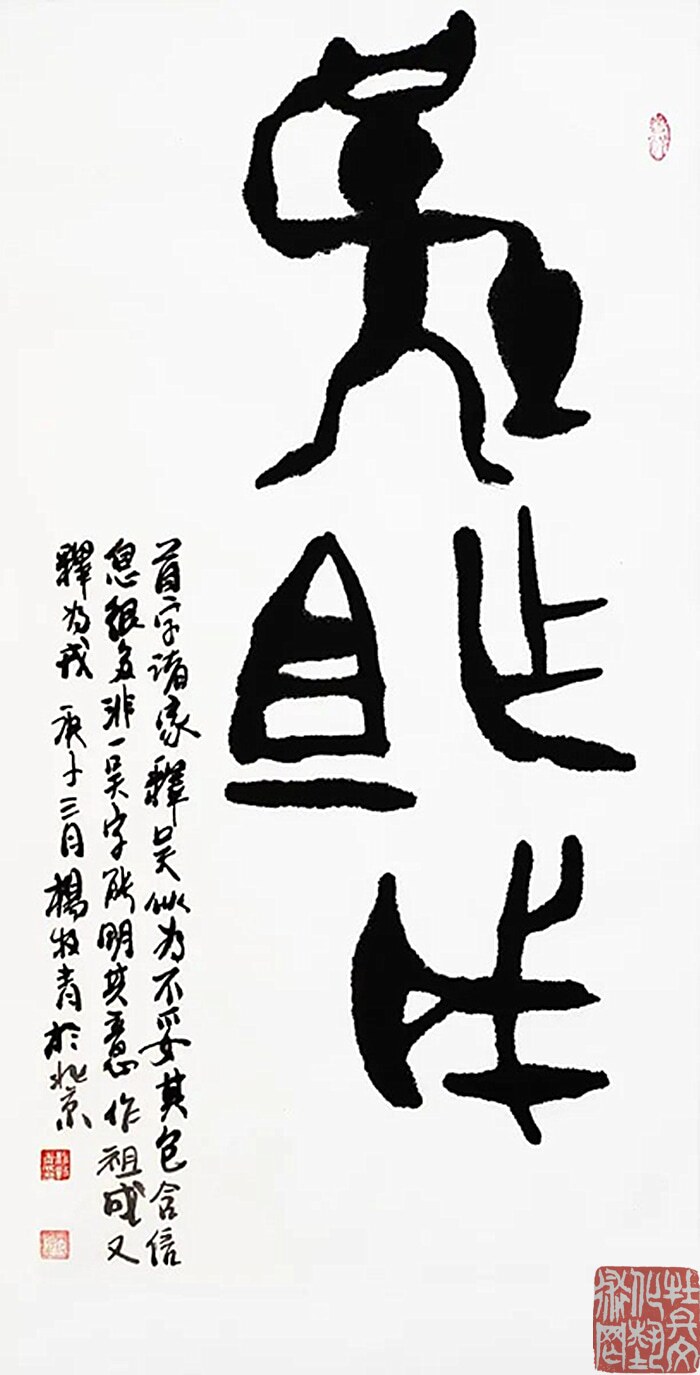 乍且
首字诸家釋吴似为不妥其包含信
息很多非一吴字能明其意作祖成又
釋为戎 庚子三月楊牧青於北京